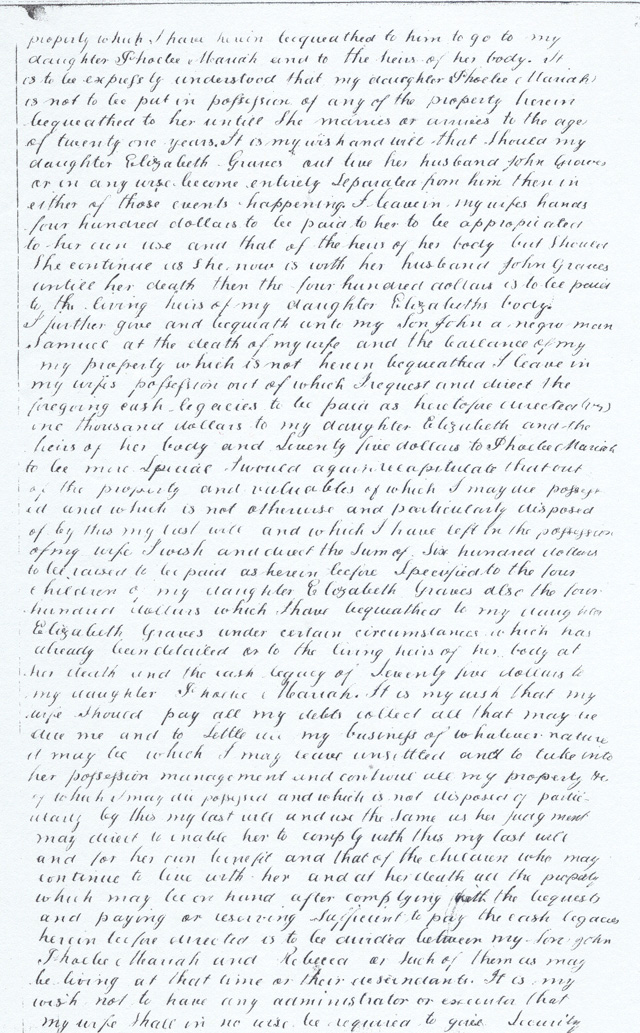 property which I have herein bequeathed to him to go to my
daughter Phoebe Mariah and to the heirs of her body. It
is to be expressly understood that my daughter Phoebe Mariah
is not to be put in possession of any of the property herein
bequeathed to her untill She marries or arrives to the age
of twenty one years. It is my wish and will that should my
daughter Elizabeth Graves out live her husband John Graves
or in any wise become entirely Separated from him then in
either of those events happening I leave in my wifes hands
four hundred dollars to be paid to her to be appropriated
to her own use and that of the heirs of her body but Should
She continue as She now is with her husband John Graves
untill her death then the four hundred dollars is to be paid
to the living heirs of my daughter Elizabeths body.
I further give and bequeath unto my Son John a negro man
Samuel at the death of my wife and the ballance of my
my property which is not herein bequeathed I leave in
my wifes possession out of which I request and direct the
foregoing cash legacies to be paid as heretofore directed
one thousand dollars to my daughter Elizabeth and the
heirs of her body and Seventy five dollars to Phoebe Mariah
to be more Special I would again recapitulate that out
of the property and valuables of which I may die possess
ed and which is not otherwise and particularly disposed
of by this my last will and which I have left in the possession
of my wife I wish and direct the Sum of Six hundred dollars
to be raised to be paid as herein before Specified to the four
children of my daughter Elizabeth Graves also the four
hundred dollars which I have bequeathed to my daughter
Elizabeth Graves under certain circumstances which has
already been detailed or to the living heirs of her body at
her death and the cash legacy of Seventy five dollars to
my daughter Phoebe Mariah. It is my wish that my
wife Should pay all my debts collect all that may be
due me and to Settle all my business of whatever nature
it may be which I may leave unsettled and to take into
her possession management and controul all my property &c
of which I may die possessed and which is not disposed of partic-
ularly by this my last will and use the Same as her judgment
may direct to enable her to comply with this my last will
and for her own benefit and that of the children who may
continue to live with her and at her death all the property
which may be on hand after complying with the bequests
and paying or reserving Sufficient to pay the cash legacies
herein before directed is to be divided between my Son John
Phoebe Mariah and Rebecca or Such of them as may
be living at that time or their descendants. It is my
wish not to have any administrator or executor that
my wife Shall in no wise be required to give Security